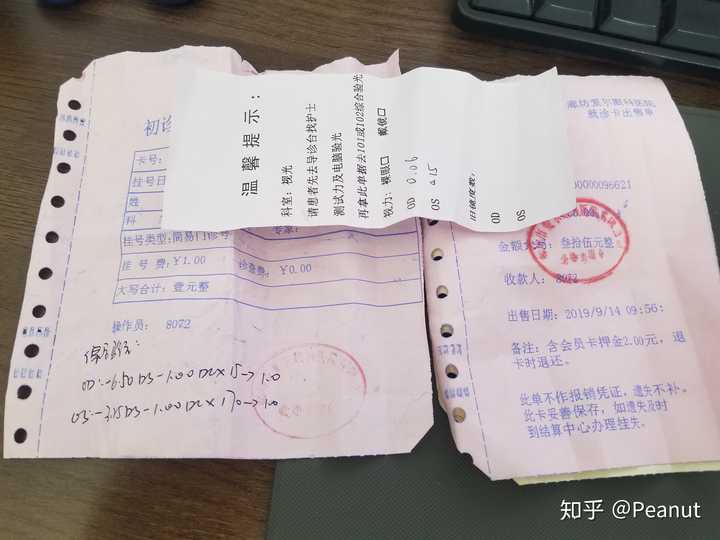 初诊
卡号:
挂号日
姓
科
挂号类型:简易门诊号
挂 号 费:¥1.00 诊查费:¥0.00
大写合计:壹元整
操作员: 8072
OD:-6.50DS-1.00DC×15→1.0
OS:-3.75DS-1.00DC×170→1.0
温馨提示:
科室:视光
请患者先去导诊台找护士
测试力及电脑验光
再拿此单据去101或102综合验光
视力: 裸眼口 戴镜口
OD 0.06
OS 0.15
旧镜度数:
OD
OS
廊坊爱尔眼科医院
就诊卡出售单
0000096621
金额大写: 叁拾伍元整
收款人: 8072
出售日期: 2019/9/14 09:56:
备注: 含会员卡押金2.00元, 退
卡时退还。
此单不作报销凭证, 遗失不补。
此卡妥善保存, 如遗失及时
到结算中心办理挂失。
知乎 @Peanut